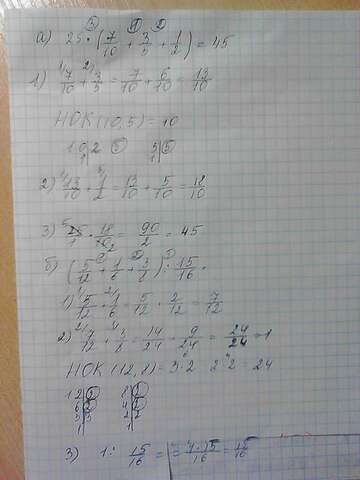 а) 25 · (7/10 + 3/5 + 1/2) = 45
1) 7/10 + 3/5 = 7/10 + 6/10 = 13/10
НОК (10,5) = 10
10 | 2 5 5 | 5
1
2) 13/10 + 1/2 = 13/10 + 5/10 = 18/10
3) 25/1 · 18/10 = 90/2 = 45
б) (5/12 + 1/6 + 3/8) : 15/16
1) 5/12 + 1/6 = 5/12 + 2/12 = 7/12
2) 7/12 + 3/8 = 14/24 + 9/24 = 24/24 = 1
НОК (12, 8) = 3·2 2·2 = 24
12 | 2 8 | 2
6 | 2 4 | 2
3 | 3 2 | 2
1 1
3) 1 : 15/16 = = 1·15/16 = 15/16